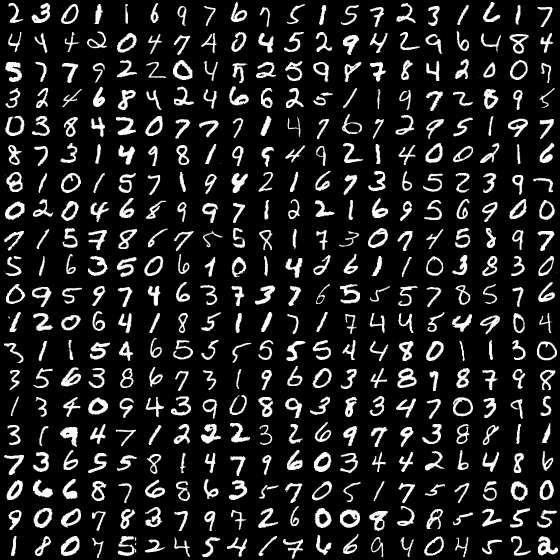 2 3 0 1 1 6 9 7 6 7 5 1 5 7 2 3 1 6 1 7
4 4 4 2 0 4 7 4 0 4 5 2 9 4 2 9 6 4 8 4
5 7 7 9 2 2 0 4 5 2 5 9 8 7 8 4 2 0 0 7
3 2 4 6 8 4 2 4 6 6 2 5 1 1 9 7 2 8 9 5
0 3 8 4 2 0 7 7 7 1 1 4 7 6 7 2 9 5 1 9 7
8 7 3 1 4 9 8 1 9 9 4 9 2 1 4 0 0 2 1 6
8 1 0 1 5 7 1 9 4 2 1 6 7 3 6 5 2 3 9 7
0 2 0 4 6 8 9 9 7 1 2 2 1 6 9 5 6 9 0 0
7 1 5 7 8 6 7 5 5 8 1 7 3 0 7 4 5 8 9 7
5 1 6 3 5 0 6 1 0 1 4 2 6 1 1 0 3 8 3 0
0 9 5 9 7 4 6 3 7 3 7 6 5 5 5 7 8 5 7 6
1 2 0 6 4 1 8 5 1 1 7 1 7 4 4 5 4 9 0 4
3 1 1 5 4 6 5 5 5 5 5 5 4 4 8 0 1 1 3 0
3 5 6 3 8 6 7 3 1 9 6 0 3 4 8 9 8 7 9 8
1 3 4 0 9 4 3 9 0 8 9 3 8 3 4 7 0 3 9 5
3 1 9 4 7 1 2 2 2 3 2 6 9 7 9 3 8 8 1 1
7 3 6 5 5 8 1 4 7 9 6 0 3 4 4 2 6 4 8 6
0 6 6 8 7 6 8 6 3 5 7 0 5 1 7 5 7 5 0 0
9 0 0 7 8 3 7 9 7 2 6 0 0 8 2 8 5 2 5 5
1 8 0 7 5 2 4 5 4 1 7 6 6 9 4 0 4 5 2 8